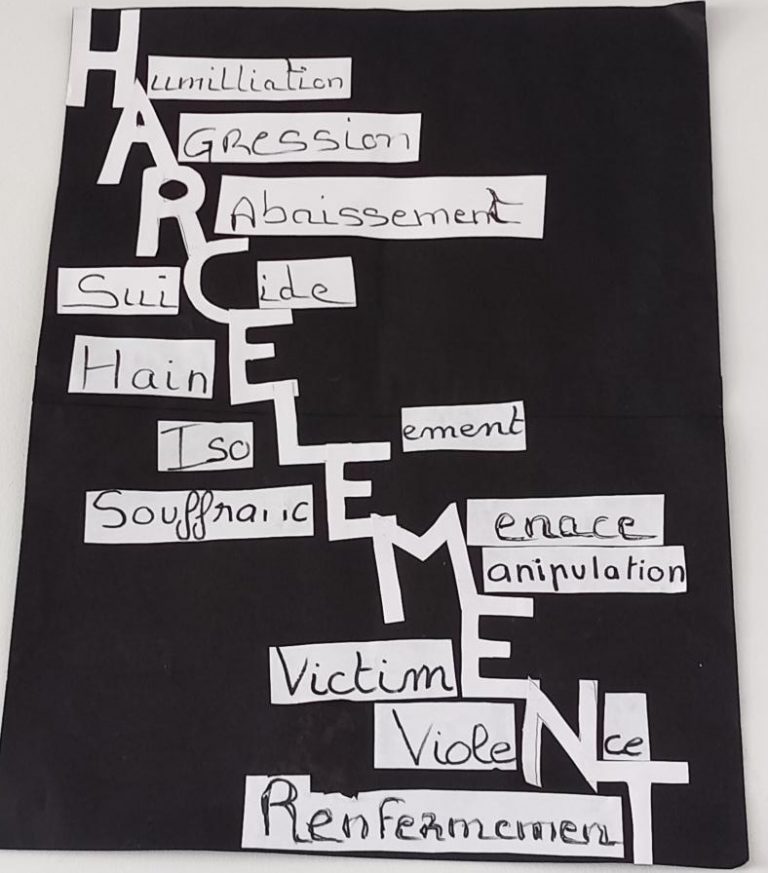 Humilliation
AGRession
RAbaissement
SuiCide
HainE
IsoLement
SouffrancE
Menace
anipulation
VictimE
VioleNce
RenfermemenT